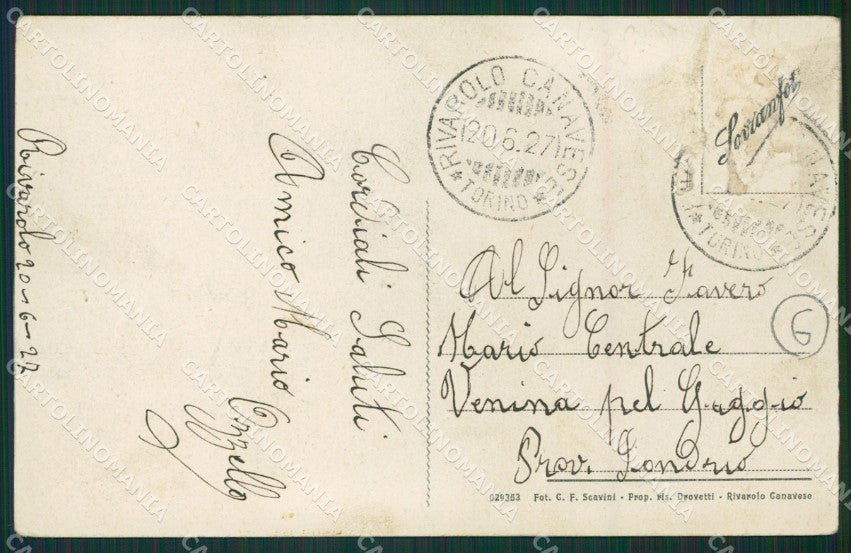 Rivarolo 20-6-27
Cordiali Saluti
Amico Mario
RIVAROLO CANAVESE
20.6.27
* TORINO *
Sovranfot
NAVESE
* TORINO
Al Signor Favero
Mario Centrale
Venina pel Gaggio
Prov. Sondrio
6
029353 Fot. C. F. Scavini - Prop. ris. Drovetti - Rivarolo Canavese
CARTOLINOMANIA